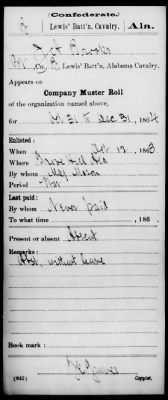 (Confederate.)
B Lewis' Batt'n, Cavalry. Ala.
Brooks
Co. B, Lewis' Batt'n, Alabama Cavalry.
Appears on
Company Muster Roll
of the organization named above,
for Oct 31 to Dec 31, 1864
Enlisted:
When Oct 12, 1863
Where Ala
By whom Maj Mason
Period War
Last paid:
By whom Never paid
To what time , 186 .
Present or absent Absent
Remarks:
Abst. without leave
Book mark:
(642) Copyist.